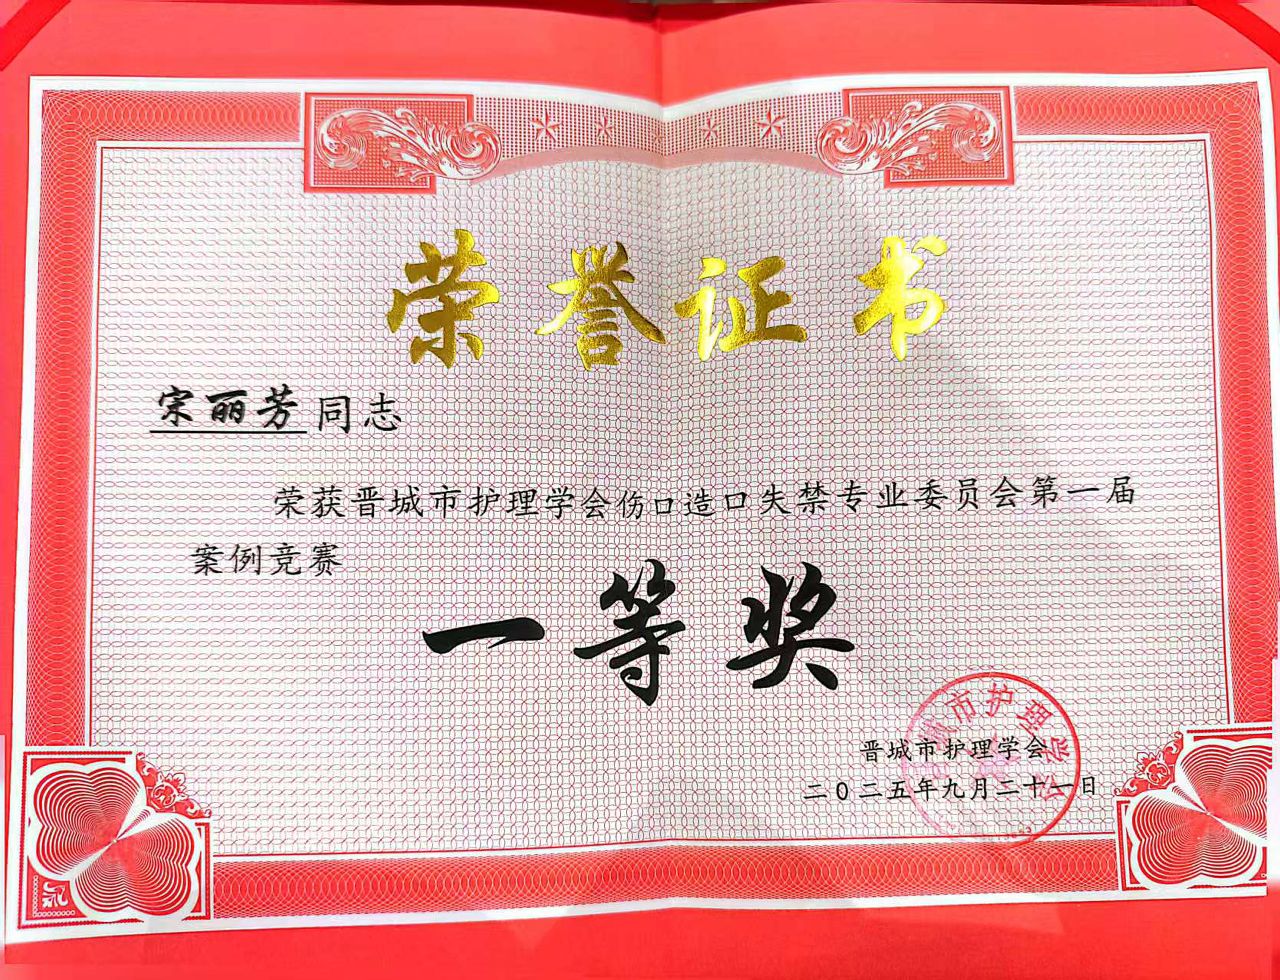 荣誉证书
宋丽芳同志
荣获晋城市护理学会伤口造口失禁专业委员会第一届
案例竞赛
一等奖
晋城市护理学会
二〇二五年九月二十一日
城市护理学会